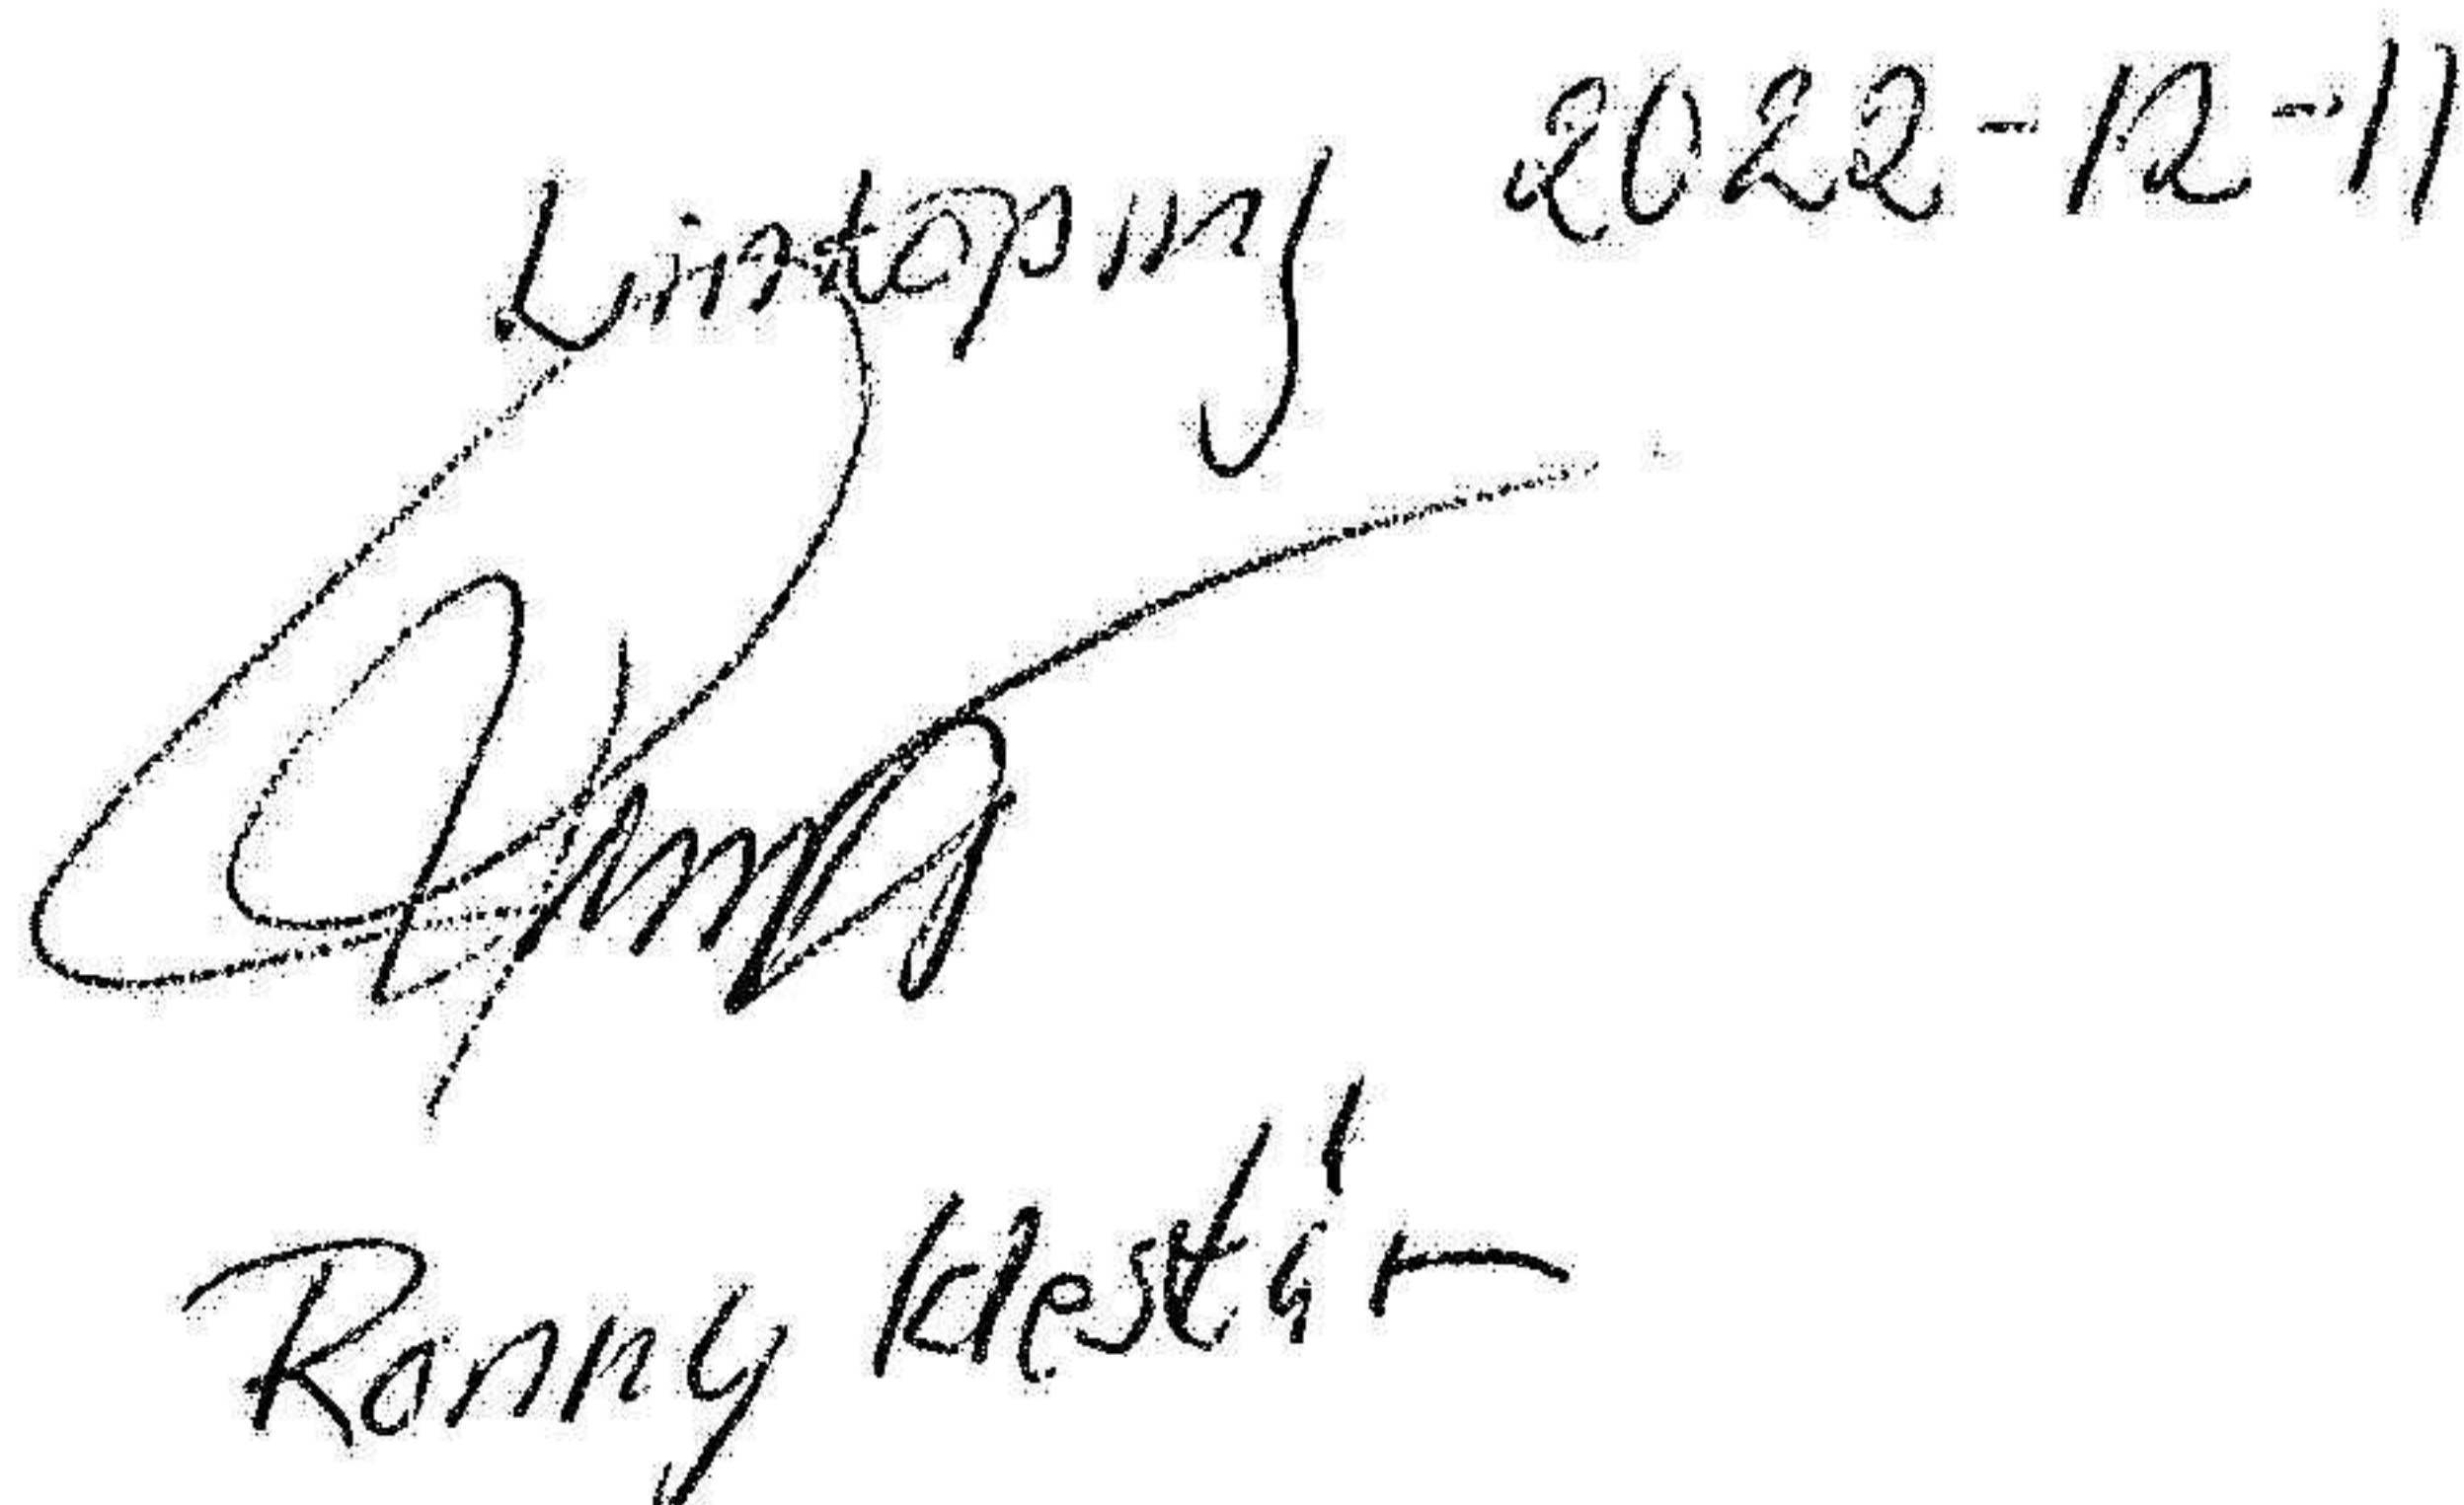 Linköping 2022-12-11
Ronny Klestär